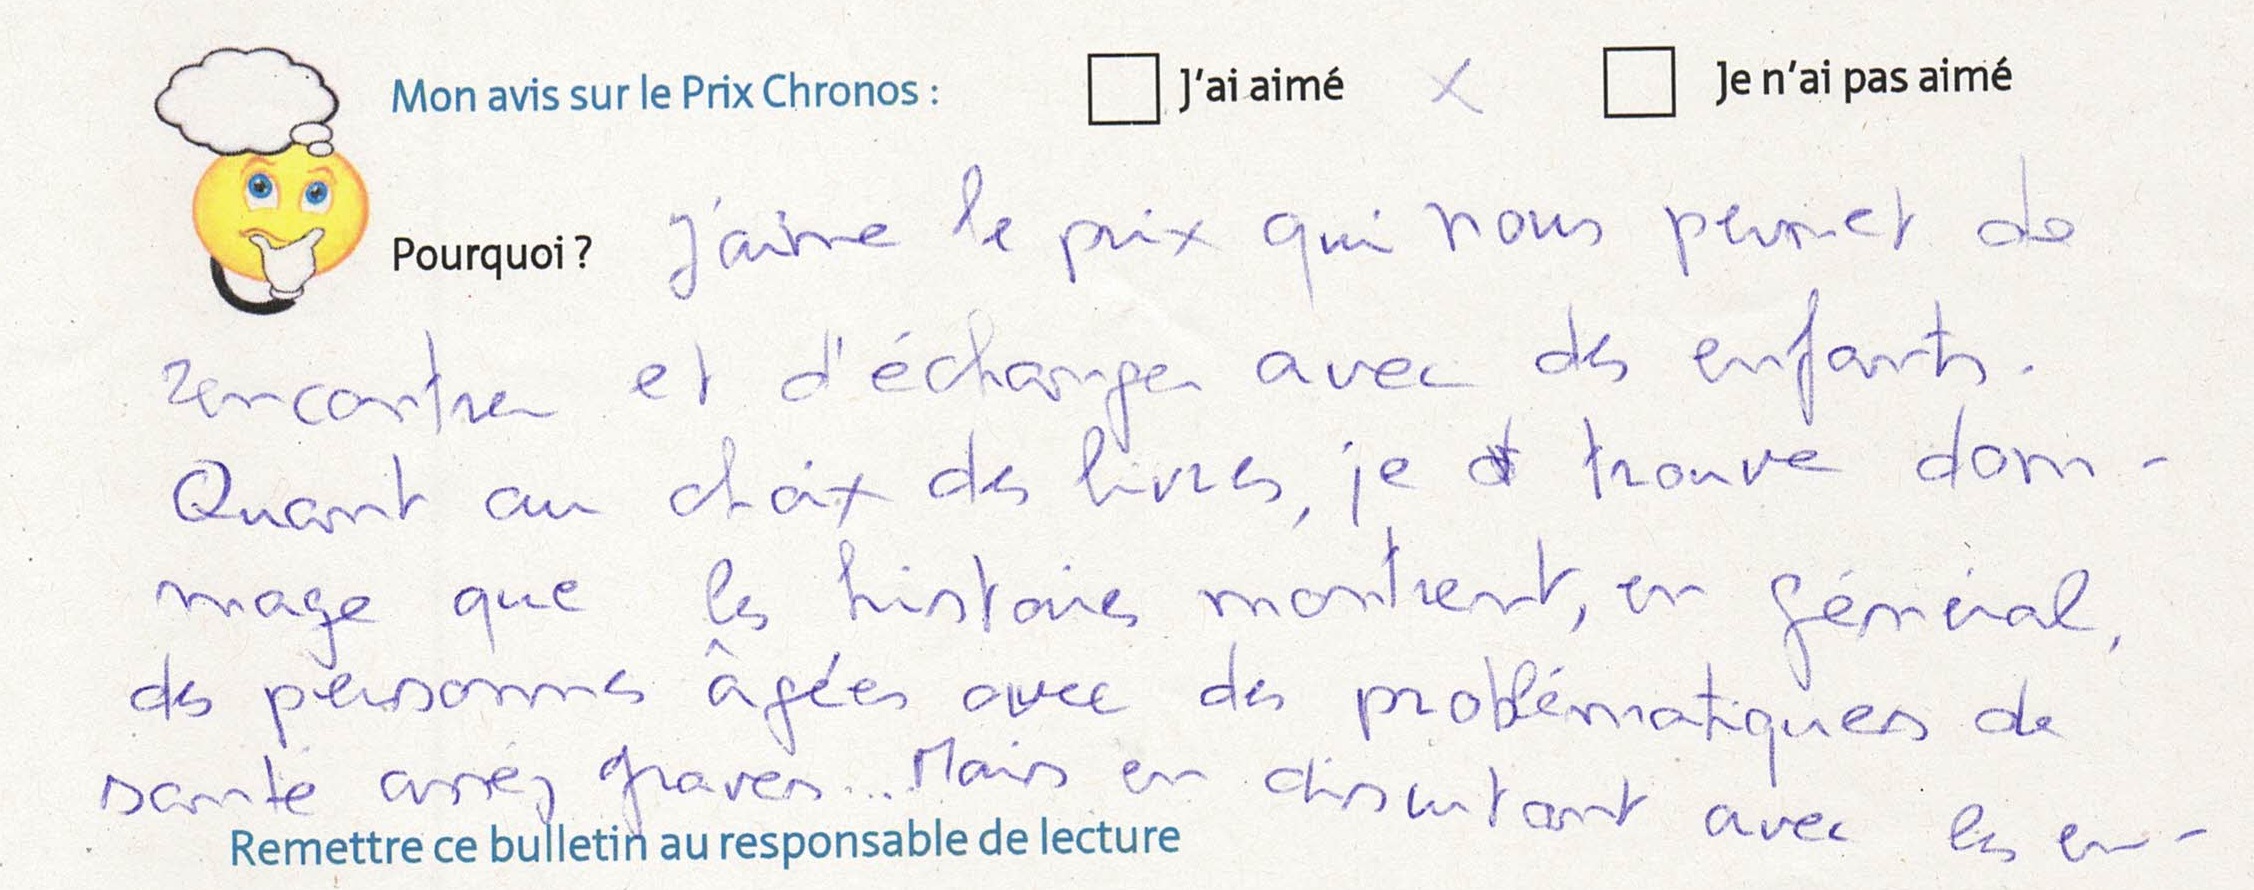 Mon avis sur le Prix Chronos : J'ai aimé X Je n'ai pas aimé
Pourquoi ? J'aime le prix qui nous permet de
rencontrer et d'échanger avec des enfants.
Quant au choix des livres, je trouve dom-
mage que les histoires montrent, en général,
des personnes âgées avec des problématiques de
santé assez graves... Mais en discutant avec les en-
Remettre ce bulletin au responsable de lecture